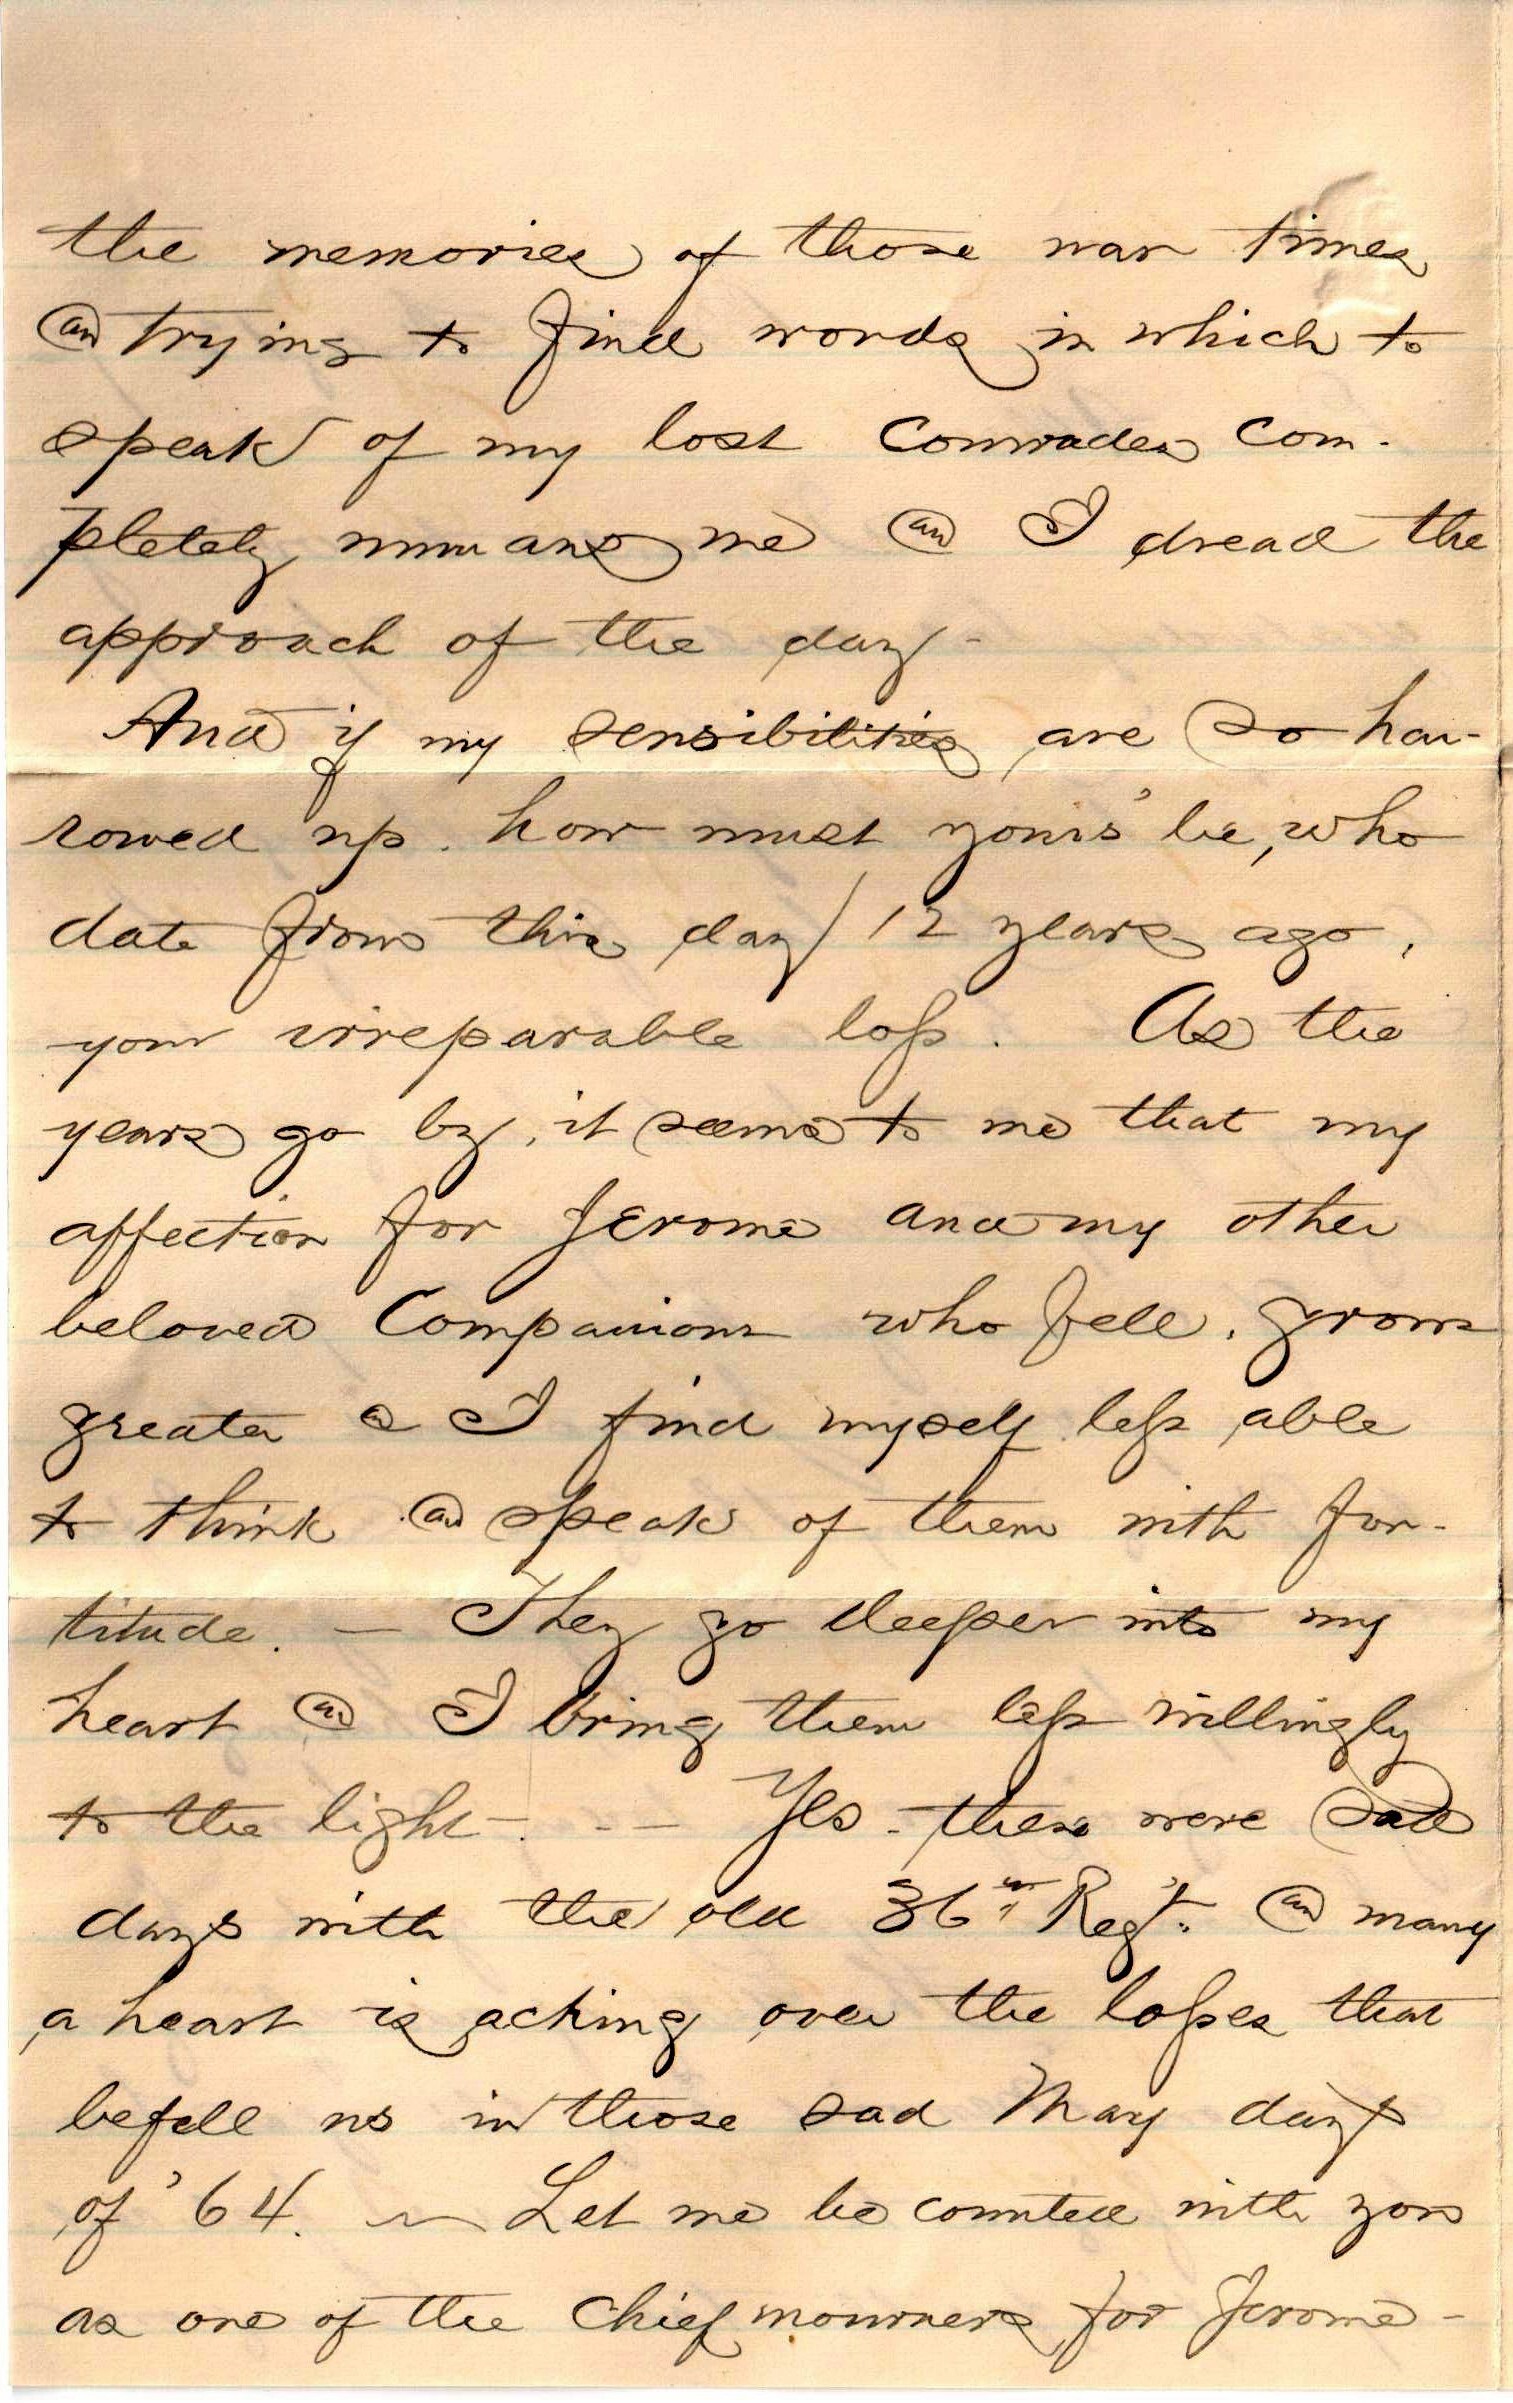 the memories of those war times
@ trying to find words in which to
speak of my lost Comrades com-
pletely unmans me @ I dread the
approach of the day -
And if my sensibilities are so har-
rowed up. how must yours' be, who
date from this day 12 years ago,
your irreparable loss. As the
years go by, it seems to me that my
affection for Jerome and my other
beloved Companions who fell, grows
greater @ I find myself less able
to think @ speak of them with for-
titude. — They go deeper into my
heart @ I bring them less willingly
to the light - - — Yes - these were sad
days with the old 36th Regt. @ many
a heart is aching over the losses that
befell us in those sad May days
of '64. — Let me be counted with you
as one of the Chief mourners for Jerome -